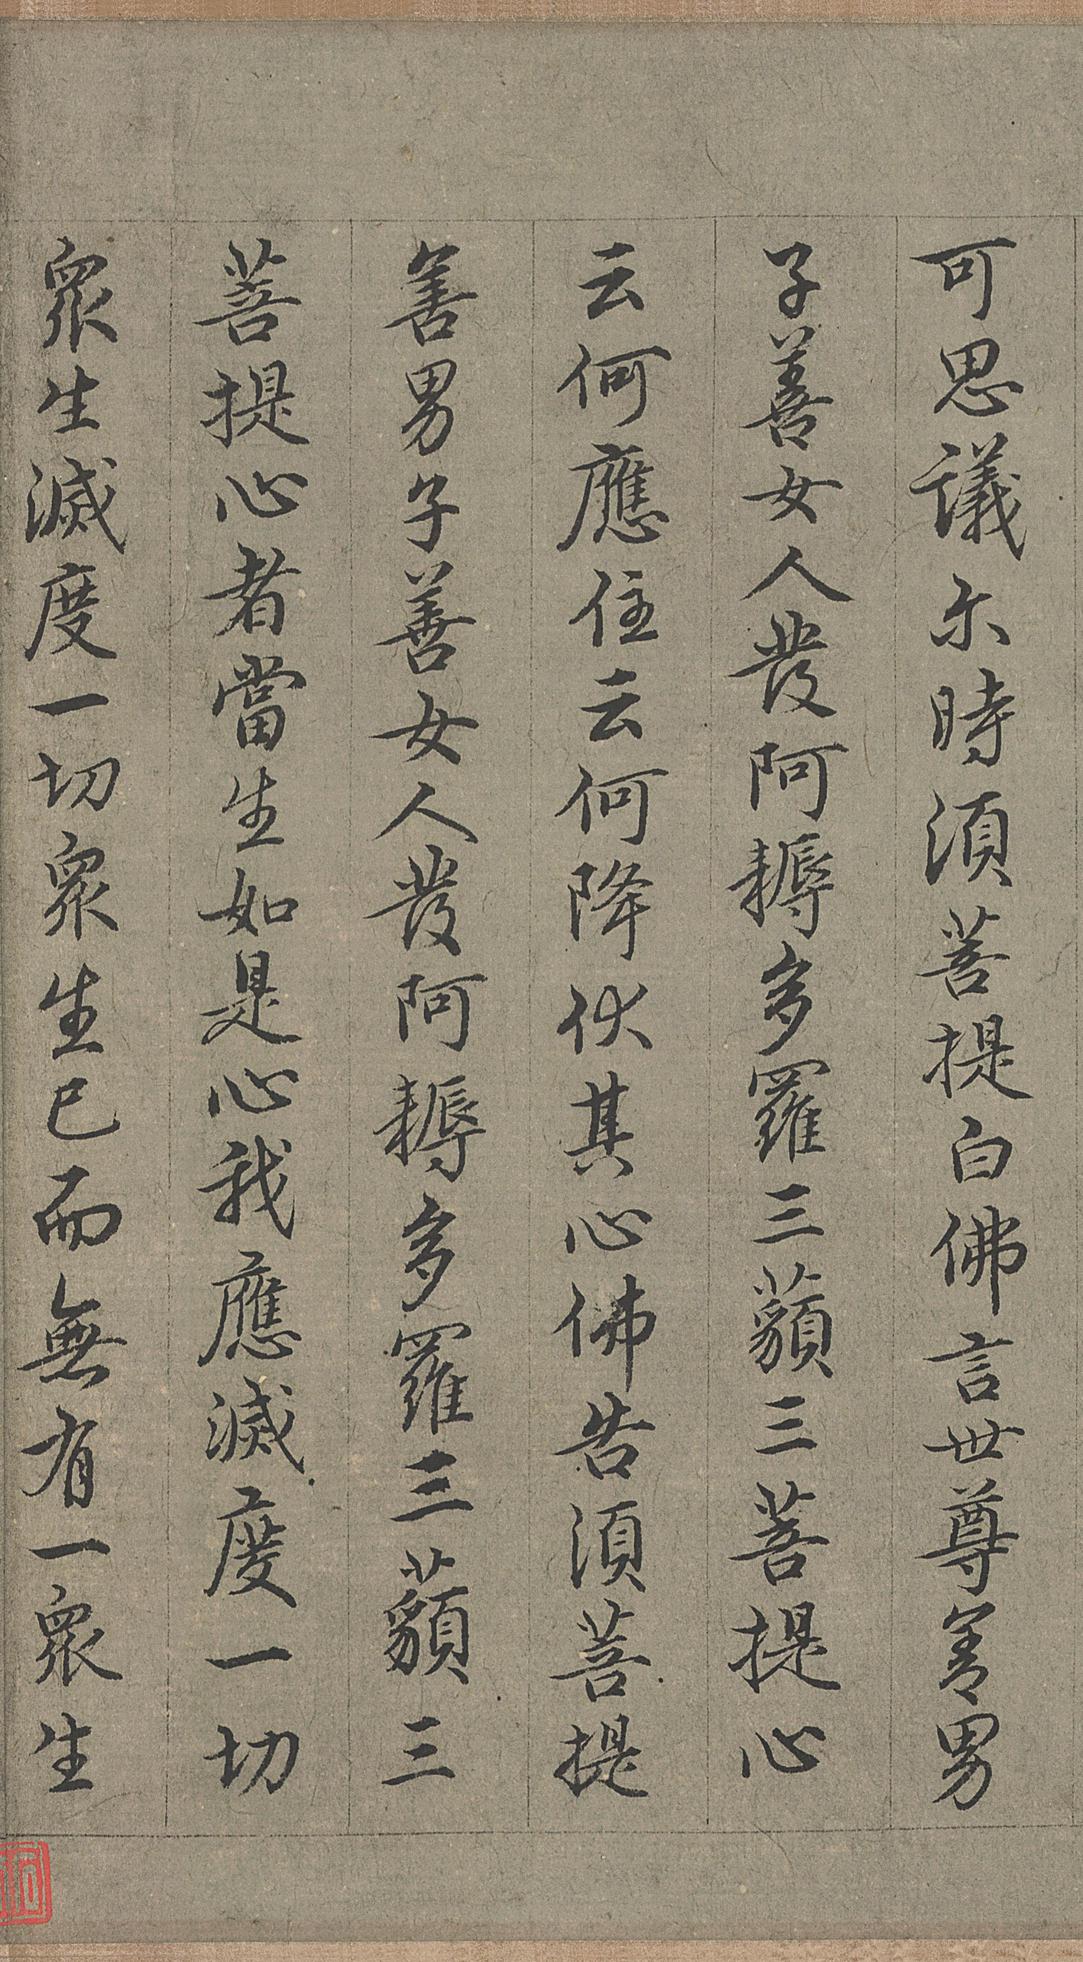 可思議尒時湏菩提白佛言世尊善男
子善女人發阿耨多羅三藐三菩提心
云何應住云何降伏其心佛告湏菩提
善男子善女人發阿耨多羅三藐三
菩提心者當生如是心我應滅度一切
衆生滅度一切衆生已而無有一衆生